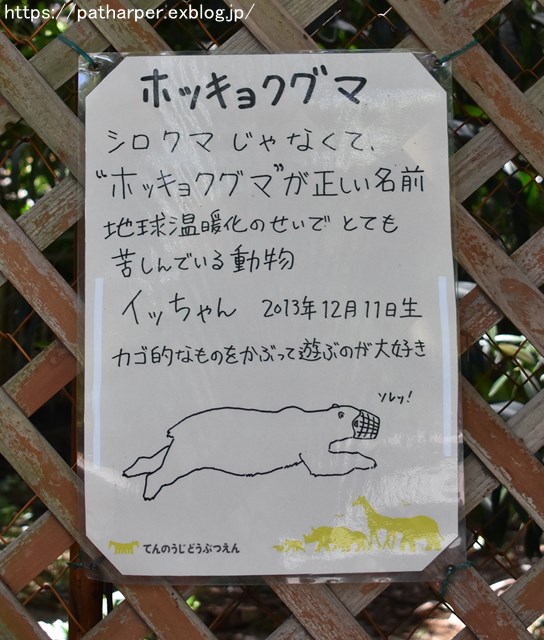 https://patharper.exblog.jp/
ホッキョクグマ
シロクマじゃなくて、
"ホッキョクグマ"が正しい名前
地球温暖化のせいでとても
苦しんでいる動物
イッちゃん 2013年12月11日生
カゴ的なものをかぶって遊ぶのが大好き
ソレッ!
てんのうじどうぶつえん